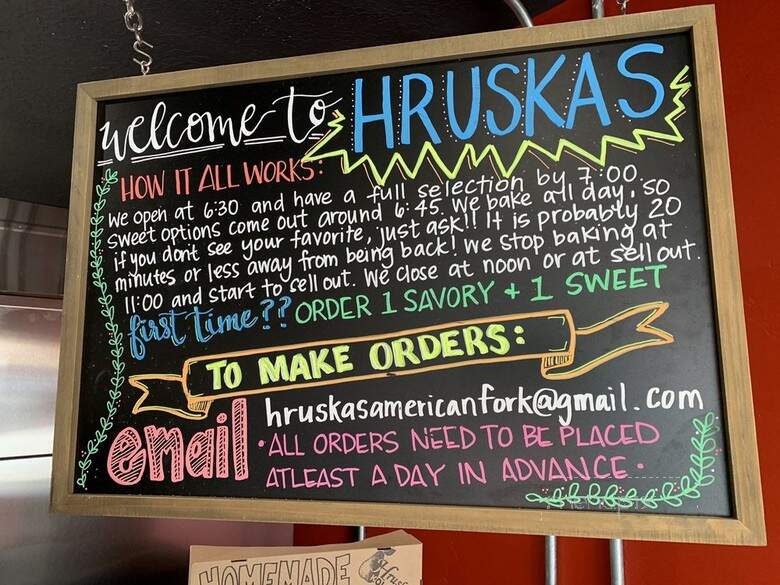 welcome to HRUSKAS
HOW IT ALL WORKS:
We open at 6:30 and have a full selection by 7:00.
Sweet options come out around 6:45. We bake all day, so
if you dont see your favorite, just ask!! It is probably 20
minutes or less away from being back! We stop baking at
11:00 and start to sell out. We close at noon or at sell out.
first time?? ORDER 1 SAVORY + 1 SWEET
TO MAKE ORDERS:
email hruskasamericanfork@gmail.com
•ALL ORDERS NEED TO BE PLACED
ATLEAST A DAY IN ADVANCE•
HOMEMADE